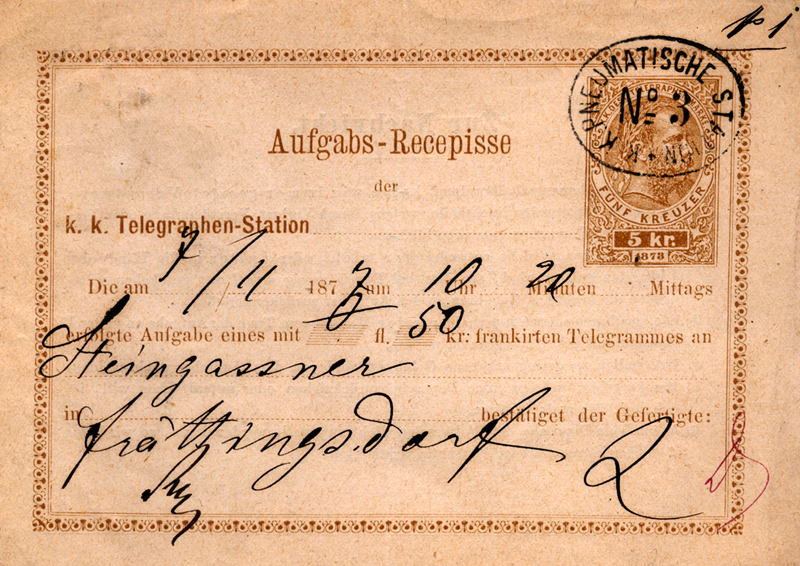 No 1
K. K. PNEUMATISCHE STATION
No 3
FÜNF KREUZER
5 kr.
1873
Aufgabs-Recepisse
der
k. k. Telegraphen-Station
Die am 7/11 187 um 10 Uhr 20 Minuten Mittags
erfolgte Aufgabe eines mit fl. 50 kr. frankirten Telegrammes an
Steingassner
in bestätiget der Gefertigte:
Frättingsdorf